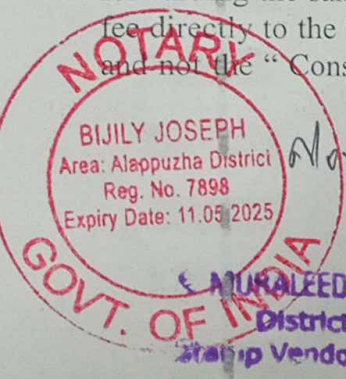 fee directly to the
and not the “ Cons
NOTARY
BIJILY JOSEPH
Area: Alappuzha District
Reg. No. 7898
Expiry Date: 11.05.2025
GOVT. OF INDIA
MURALEED
District
Stamp Vendo